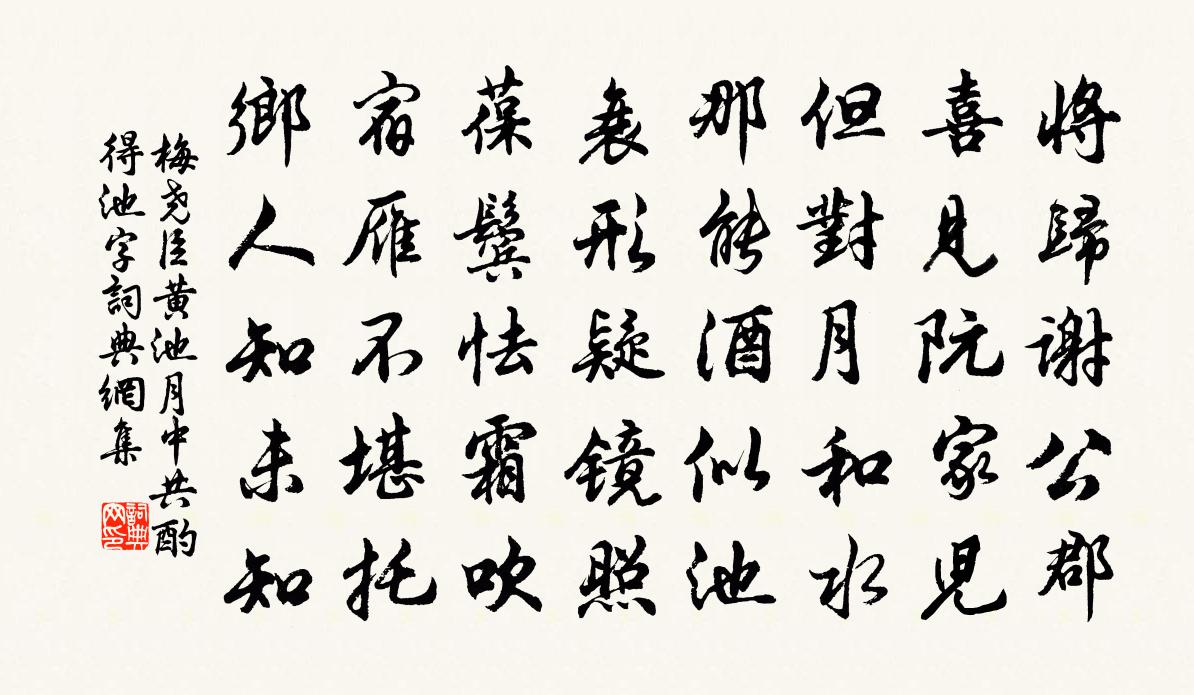 將歸謝公郡
喜見阮家兒
但對月和水
那能酒似池
衰形疑鏡照
葆鬢怯霜吹
宿雁不堪托
鄉人知未知
梅堯臣黄池月中共酌
得池字詞典網集
詞典
网印